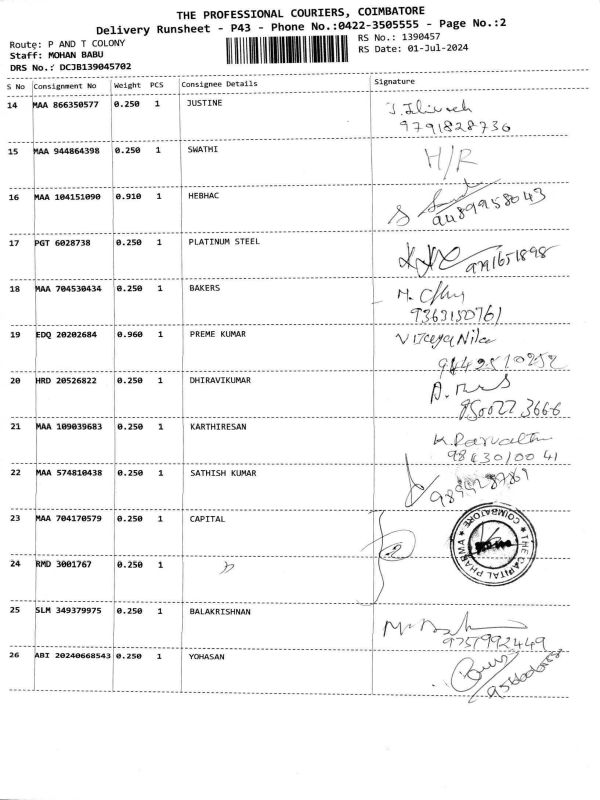 THE PROFESSIONAL COURIERS, COIMBATORE
Delivery Runsheet - P43 - Phone No.:0422-3505555 - Page No.:2
Route: P AND T COLONY
RS No.: 1390457
Staff: MOHAN BABU
RS Date: 01-Jul-2024
DRS No.: DCJB139045702
S No Consignment No Weight PCS Consignee Details Signature
14 MAA 866350577 0.250 1 JUSTINE
9791828736
15 MAA 944864398 0.250 1 SWATHI H/R
16 MAA 104151090 0.910 1 HEBHAC
9489958043
17 PGT 6028738 0.250 1 PLATINUM STEEL
9791651898
18 MAA 704530434 0.250 1 BAKERS
9363150761
19 EDQ 20202684 0.960 1 PREME KUMAR
9442510252
20 HRD 20526822 0.250 1 DHIRAVIKUMAR
950022 3666
21 MAA 109039683 0.250 1 KARTHIRESAN
K. Parvathi
98430100 41
22 MAA 574810438 0.250 1 SATHISH KUMAR
23 MAA 704170579 0.250 1 CAPITAL
2
THE CAPITAL PHARMA
COIMBATORE
24 RMD 3001767 0.250 1
25 SLM 349379975 0.250 1 BALAKRISHNAN
9751992449
26 ABI 20240668543 0.250 1 YOHASAN